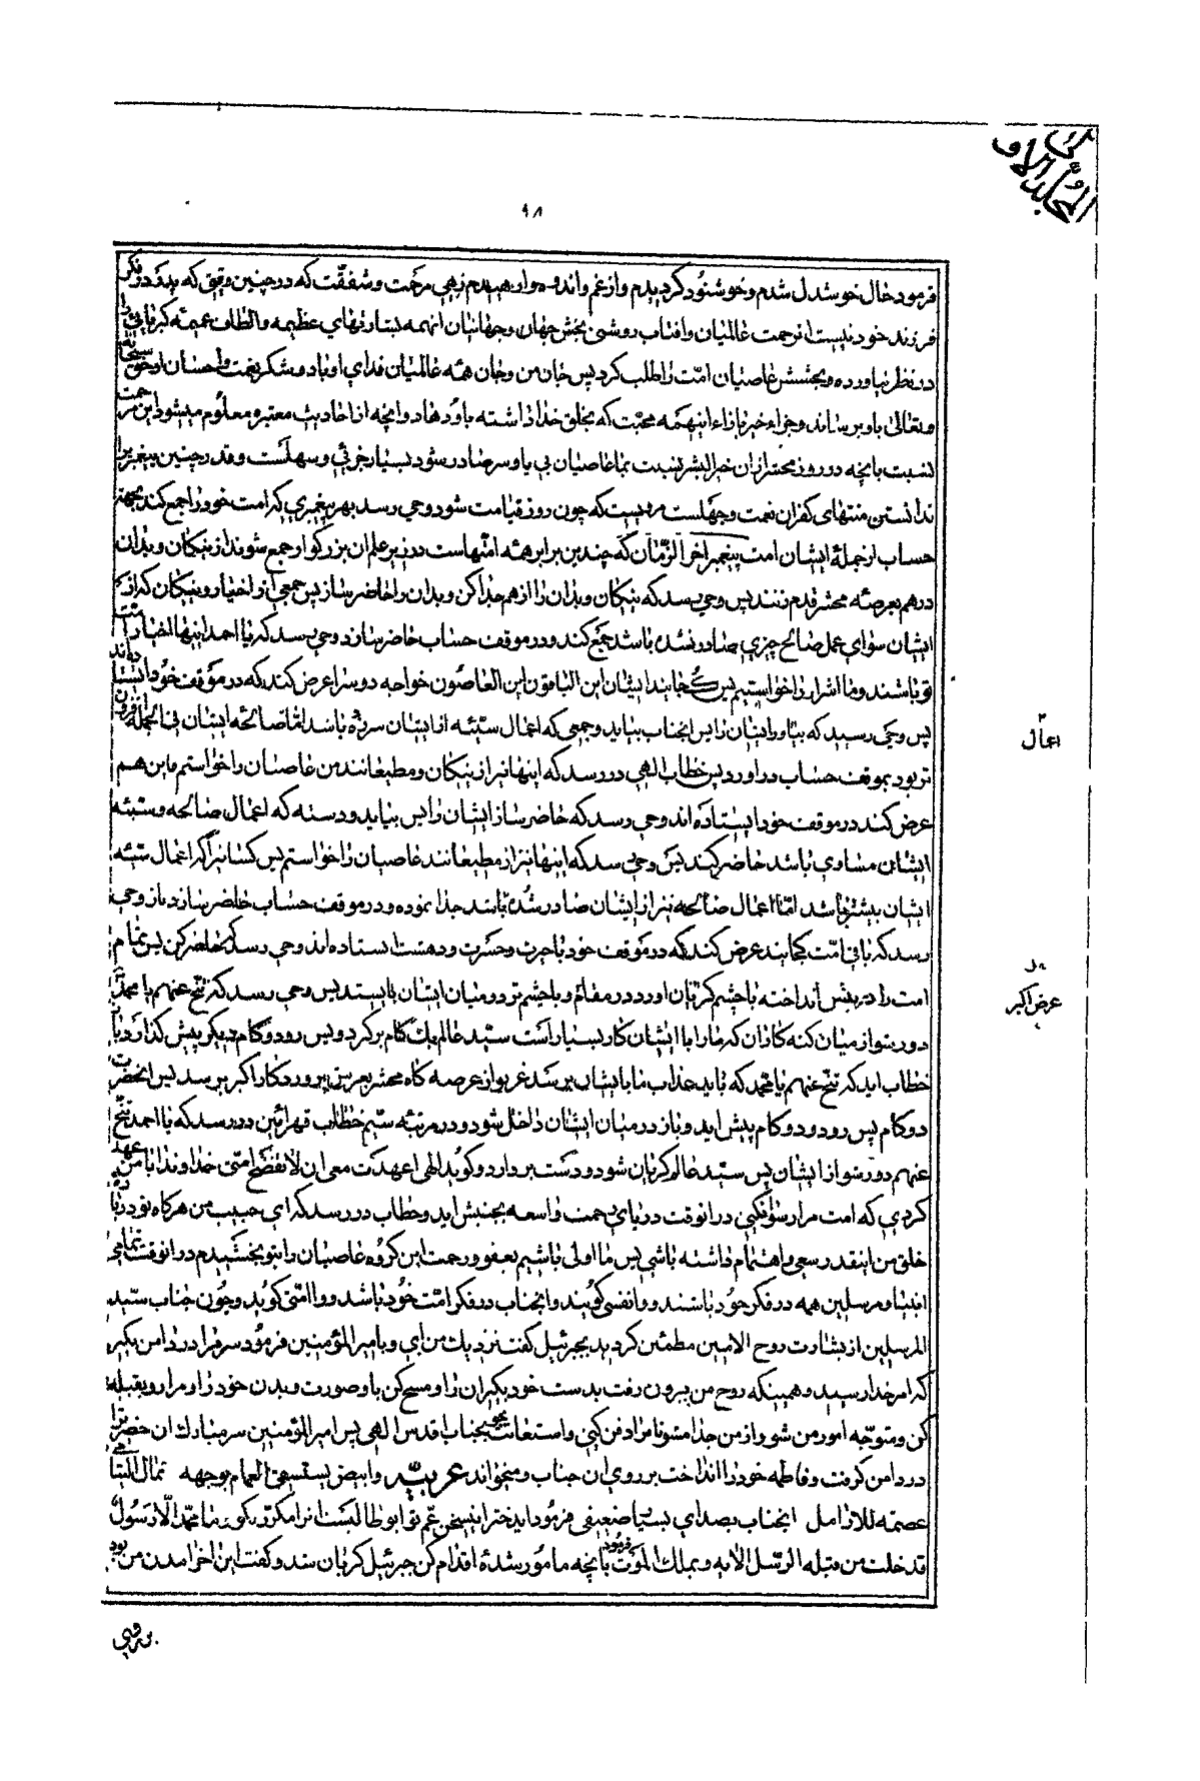 المجلد الاول
٩٨
فرمود حال خوشدل شدم و خوشنود گردیدم و از غم و اندوه وارهیدم زهی مرحمت و شفقت که در چنین وقتی که پدر در فکر
فرزند خود نیست از رحمت عالمیان و آفتاب روشنی بخش جهان و جهانیان اینهمه بشارتهای عظیمه و الطاف عمیمه کبریائی را
در نظر نیاورده و بخشش عاصیان امت را طلب کرد پس جان من و جان همه عالمیان فدای او باد و شکر نعمت و احسان او حق سبحانه
و تعالی باو برساند و جزاء خیر بازاء اینهمه محبت که بخلق خدا داشته باو دهاد و آنچه از احادیث معتبره معلوم میشود این مرحمت
نسبت بآنچه در روز محشر از آن خیر البشر نسبت بما عاصیان بی پا و سر صادر شود بسیار جزئی و سهلست و قدر چنین پیغمبر را
ندانستن منتهای کفران نعمت و جهلست مرویست که چون روز قیامت شود وحی رسد بهر پیغمبری که امت خود را جمع کند بجهة
حساب از جملهٔ ایشان امت پیغمبر آخر الزمان که چندین برابر همه امتهاست در زیر علم آن بزرگوار جمع شوند از نیکان و بدان
درهم بعرصه محشر قدم زنند پس وحی رسد که نیکان و بدان را از هم جدا کن و بدان را حاضر ساز پس جمعی از اخیار و نیکان که از
ایشان سوای عمل صالح چیزی صادر نشده باشد جمع کند و در موقف حساب حاضر سازد وحی رسد که یا احمد اینها اخیار امت
تو باشند و ما اشرار را خواستیم پس کجایند ایشان این الباقون این العاصون خواجه دو سرا عرض کند که در موقف خود ایستاده اند
پس وحی رسید که بیاور ایشان را پس آنجناب بیاید و جمعی که اعمال سیئه از ایشان سر زده باشد اما صالحه ایشان فی الجمله افزون
تر بود بموقف حساب در آورد پس خطاب الهی در رسد که اینها نیز از نیکان و مطیعانند من عاصیان را خواستم ما بن هم
عرض کند در موقف خود ایستاده اند وحی رسد که حاضر ساز ایشان را پس بیاید و دسته که اعمال صالحه و سیئه
ایشان مساوی باشد حاضر کند پس وحی رسد که اینها نیز از مطیعانند عاصیان را خواستم پس کسانیرا که اعمال سیئه
ایشان بیشتر باشد اما اعمال صالحه نیز از ایشان صادر شده باشد جدا نموده و در موقف حساب حاضر سازد باز وحی
رسد که باقی امت کجایند عرض کند که در موقف خود با حیرت و حسرت و دهشت ایستاده اند وحی رسد که حاضر کن پس تمام
امت را در پیش انداخته با چشم گریان آورد در مقام و با چشم تر در میان ایشان بایستد پس وحی رسد که تنح عنهم یا محمد
دور شو از میان گنه کاران که ما را با ایشان کار بسیار است سید عالم یک گام برگردد پس رود و گام دیگر پیش گذارد باز
خطاب آید که تنح عنهم یا محمد که باید عذاب ما بایشان برسد غریو از عرصه گاه محشر بعرش پروردگار اکبر برسد پس آنحضرت
دو گام پس رود و دو گام پیش آید و باز در میان ایشان داخل شود و در مرتبه سیم خطاب قهر آئین در رسد که یا احمد تنح
عنهم دور شو از ایشان پس سید عالم گریان شود و دست بردارد و گوید الهی اعهدت معی ان لا تفضح امتی خداوندا با من عهد
کردی که امت مرا رسوا نکنی در آنوقت دریای رحمت واسعه بجنبش آید و خطاب در رسد که ای حبیب من هرگاه تو دربارهٔ
خلق من اینقدر سعی و اهتمام داشته باشی پس ما اولی باشیم بعفو و رحمت این گروه عاصیان را بتو بخشیدم در آنوقت تمامی
انبیا و مرسلین همه در فکر خود باشند و وا نفسی گویند و آنجناب در فکر امت خود باشد و وا امتی گوید و چون جناب سید
المرسلین از بشارت روح الامین مطمئن گردید بجبرئیل گفت نزدیک من آی و با میر المؤمنین فرمود سر مرا در دامن بگیر
که امر خدا رسید و همینکه روح من بیرون رفت بدست خود بگیر آن را و مسح کن با و صورت و بدن خود را و مرا رو بقبله
کن و متوجه امور من شو و از من جدا مشو تا مرا دفن کنی و استعانت بجو بجناب اقدس الهی پس امیر المؤمنین سر مبارک آن حضرت را
در دامن گرفت و فاطمه خود را انداخت بر روی آن جناب و میخواند عربیّه وابیض یستسقی الغمام بوجهه ثمال الیتامی
عصمة للارامل آنجناب بصدای بسیار ضعیفی فرمود ایدختر این سخن عم تو ابوطالبست آنرا مگو بگو و ما محمد الا رسول
قد خلت من قبله الرسل الایه و بملک الموت فرمود بآنچه مامور شدهٔ اقدام کن جبرئیل گریان شد و گفت این آخر آمدن من بود
اعمال
عرض اکبر
بزمین